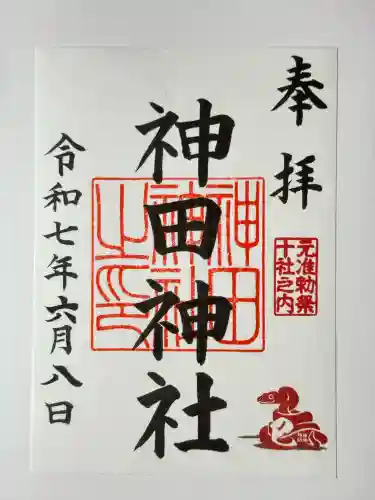 奉拝
元准勅祭
十社之内
神田神社
神田神社之印
令和七年六月八日